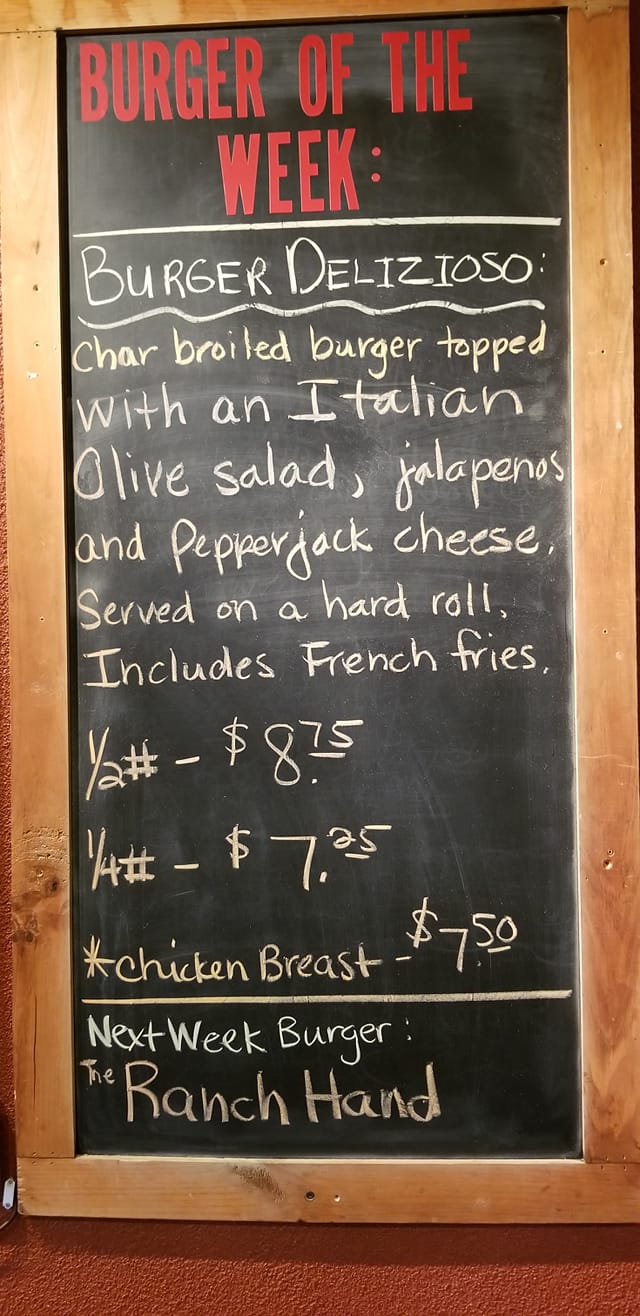 BURGER OF THE
WEEK:
BURGER DELIZIOSO:
Char broiled burger topped
with an Italian
Olive salad, jalapenos
and Pepperjack cheese.
Served on a hard roll.
Includes French fries.
1/2# - $8.75
1/4# - $7.25
*Chicken Breast - $7.50
Next Week Burger:
The Ranch Hand